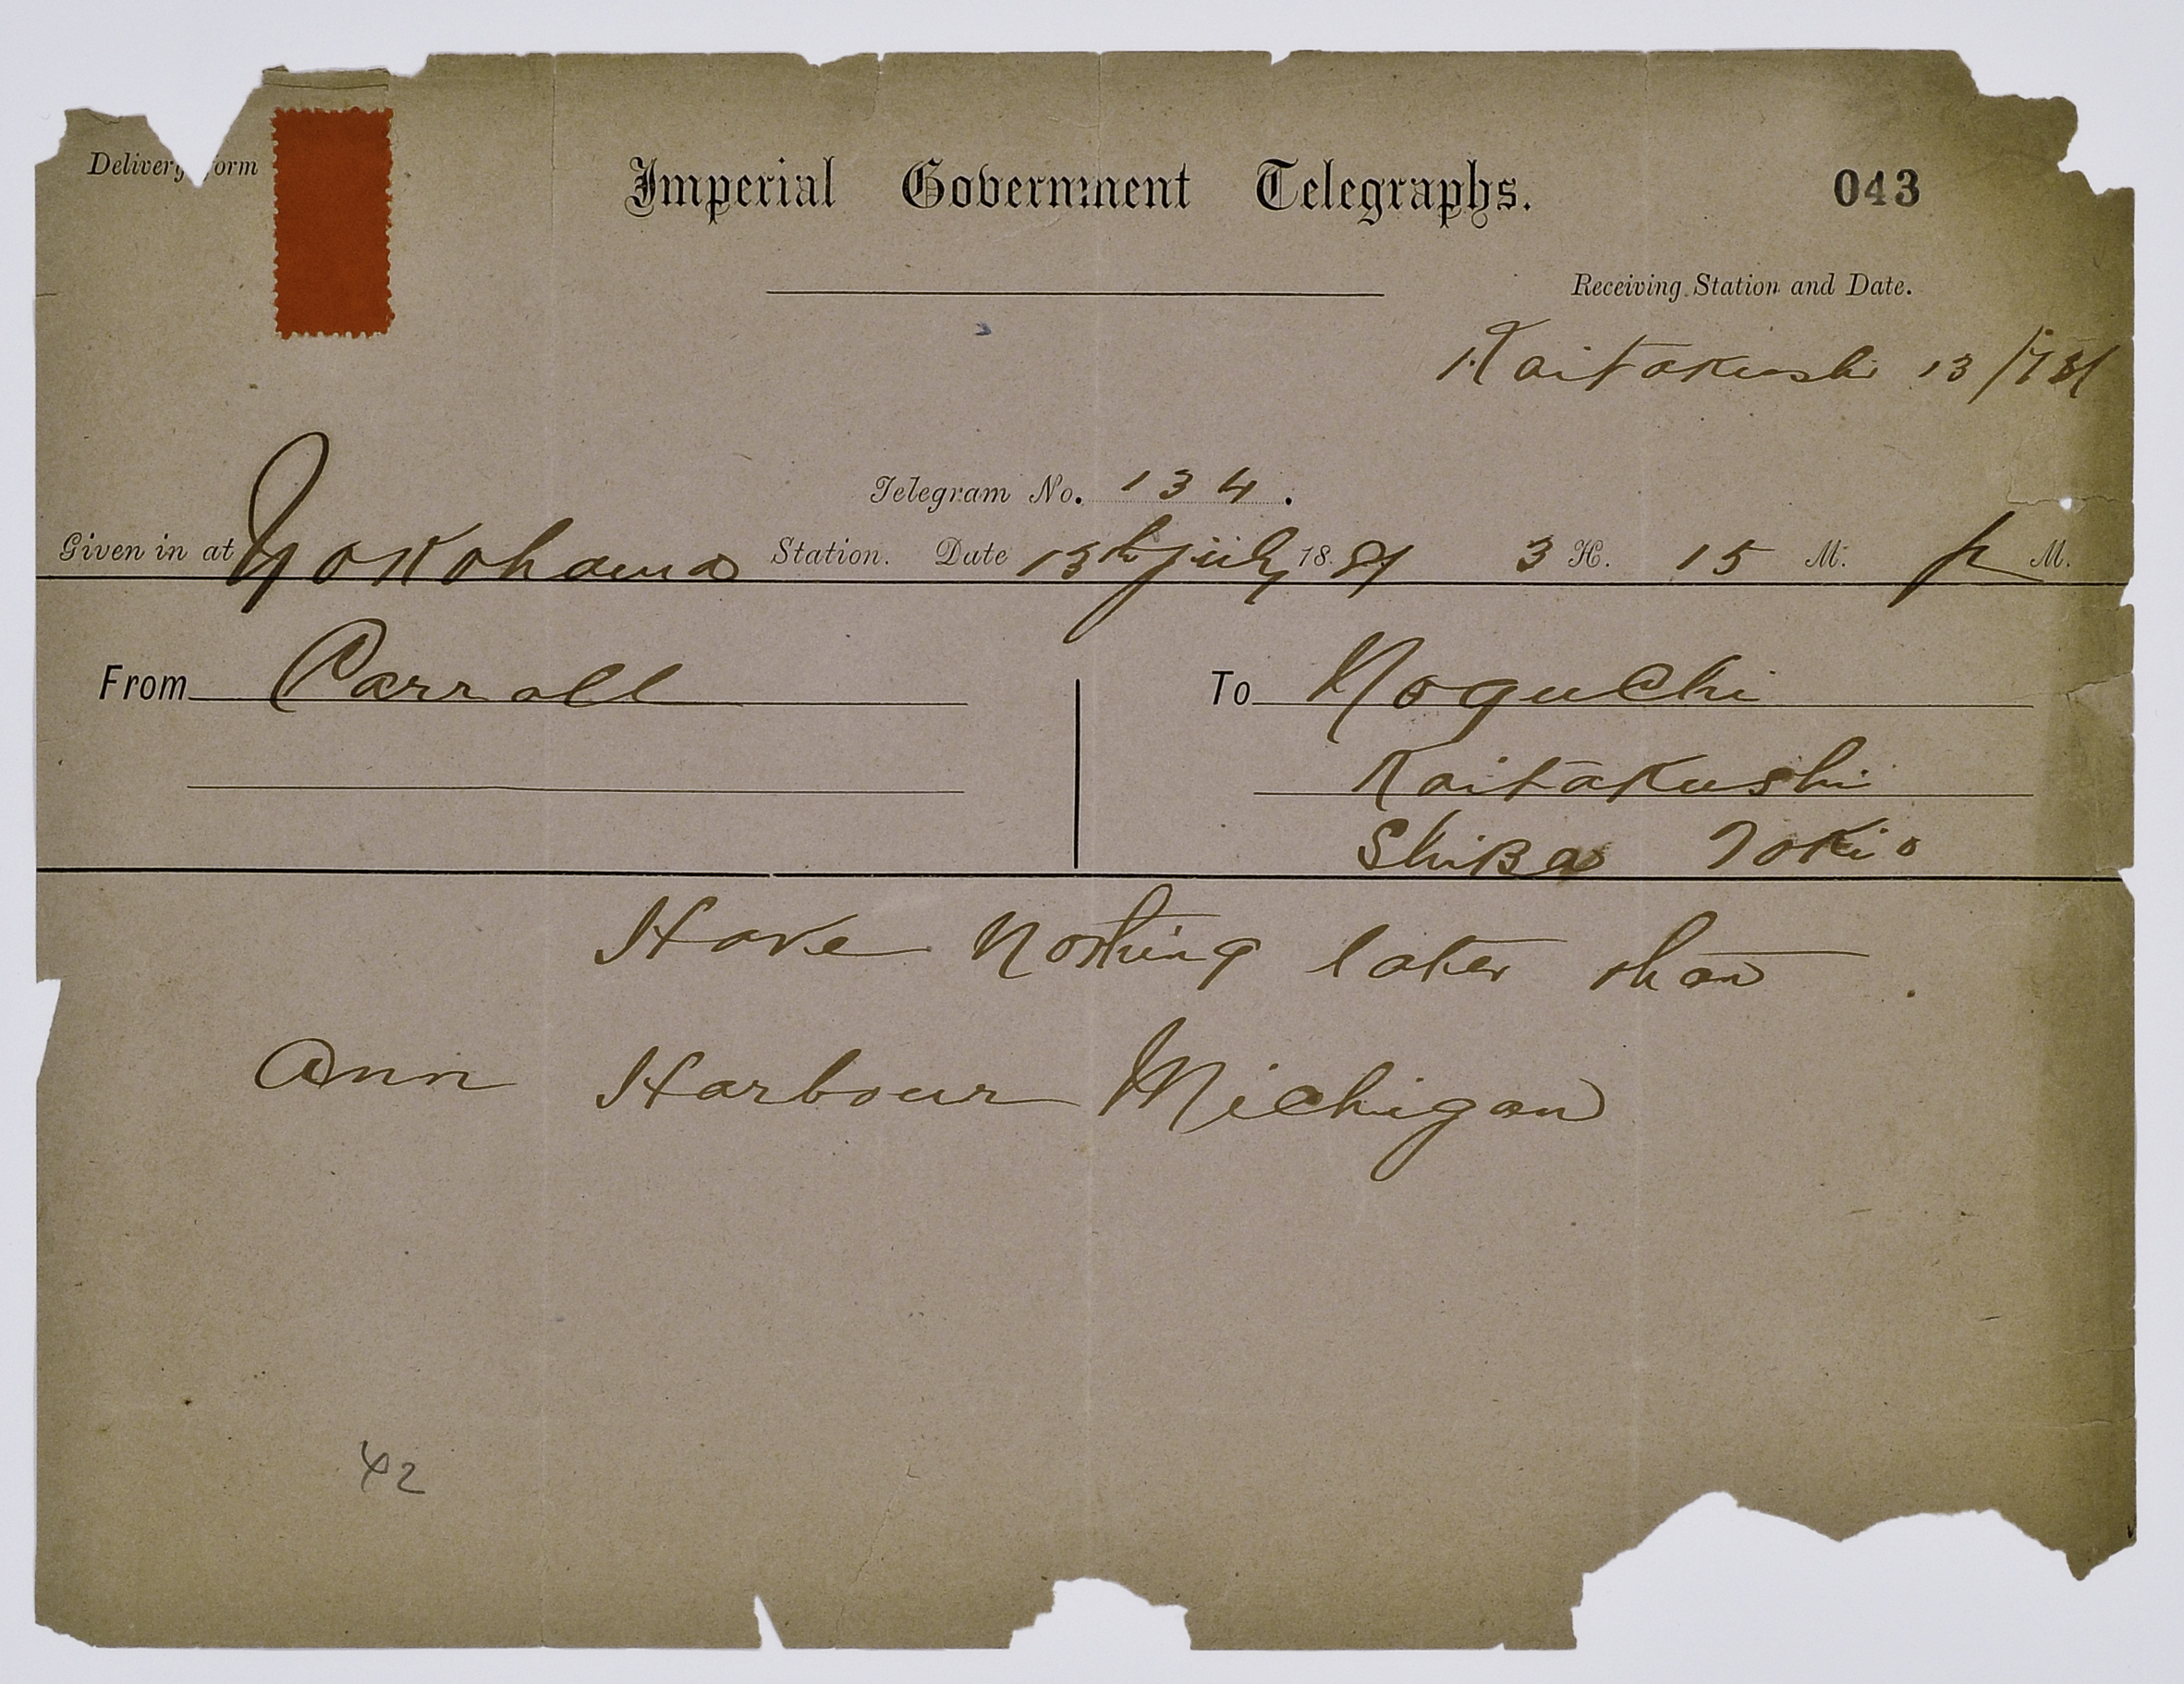 Delivery form
Imperial Government Telegraphs.
043
Receiving Station and Date.
Kaitakushi 13/7 81
Telegram No. 134.
Given in at Yokohama Station. Date 13th July 18.81 3 H. 15 M. p M.
From Carroll
To Noguchi
Kaitakushi
Shiba Tokio
Have Nothing later than
Ann Harbour Michigan
42